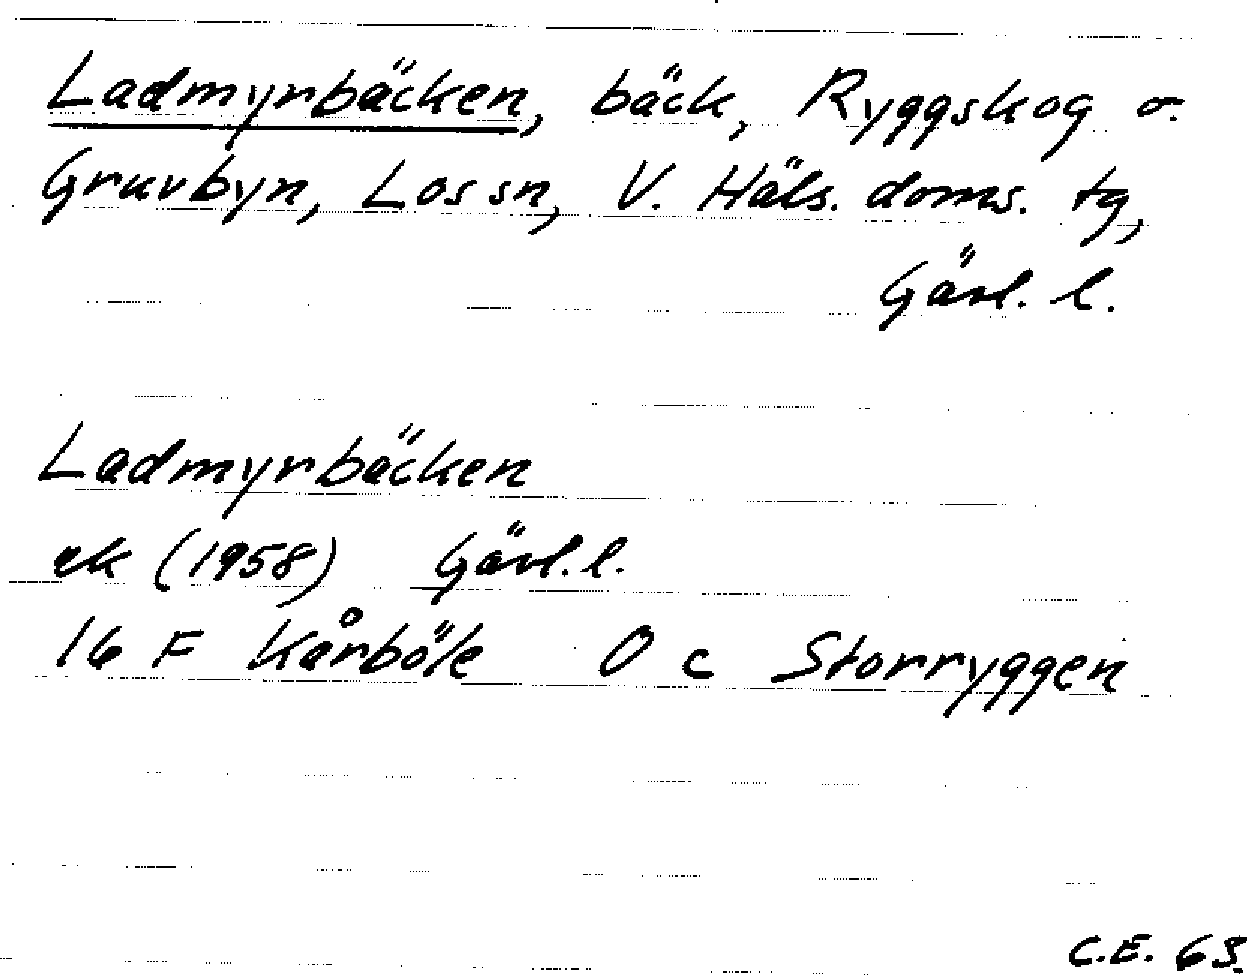 Ladmyrbäcken, bäck, Ryggskog o.
Gruvbyn, Los sn, V. Häls. doms. tg,
Gävl. l.
Ladmyrbäcken
ek (1958) Gävl. l.
16 F Kårböle O c Storryggen
C.E. 63